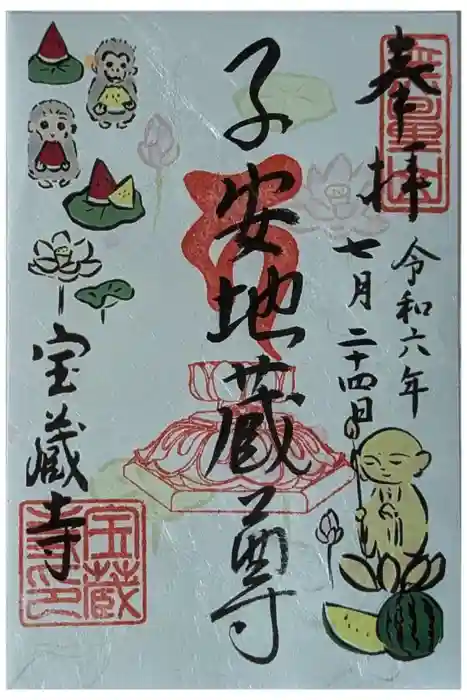 奉拝
令和六年
七月二十四日
子安地蔵尊
宝蔵寺
宝蔵
寺印